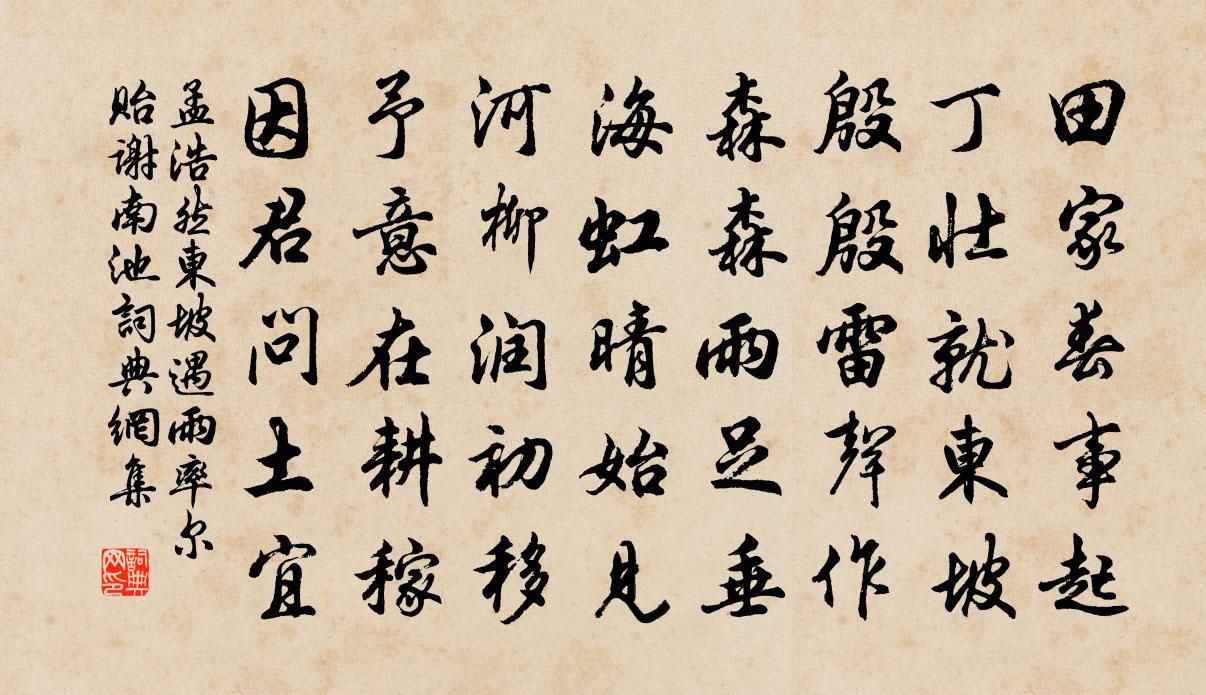 田家春事起
丁壮就東坡
殷殷雷聲作
森森雨足垂
海虹晴始見
河柳润初移
予意在耕稼
因君问土宜
孟浩然東坡遇雨率尔
贻谢南池詞典網集
詞典网印